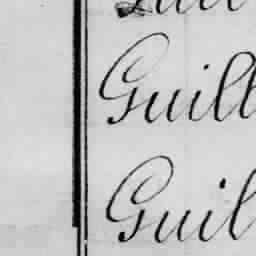 Guill
Guil